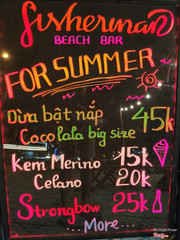 fisherman
BEACH BAR
FOR SUMMER
Dừa bật nắp 45k
Coco lala big size
Kem Merino 15k
Celano 20k
Strongbow 25k
...More...